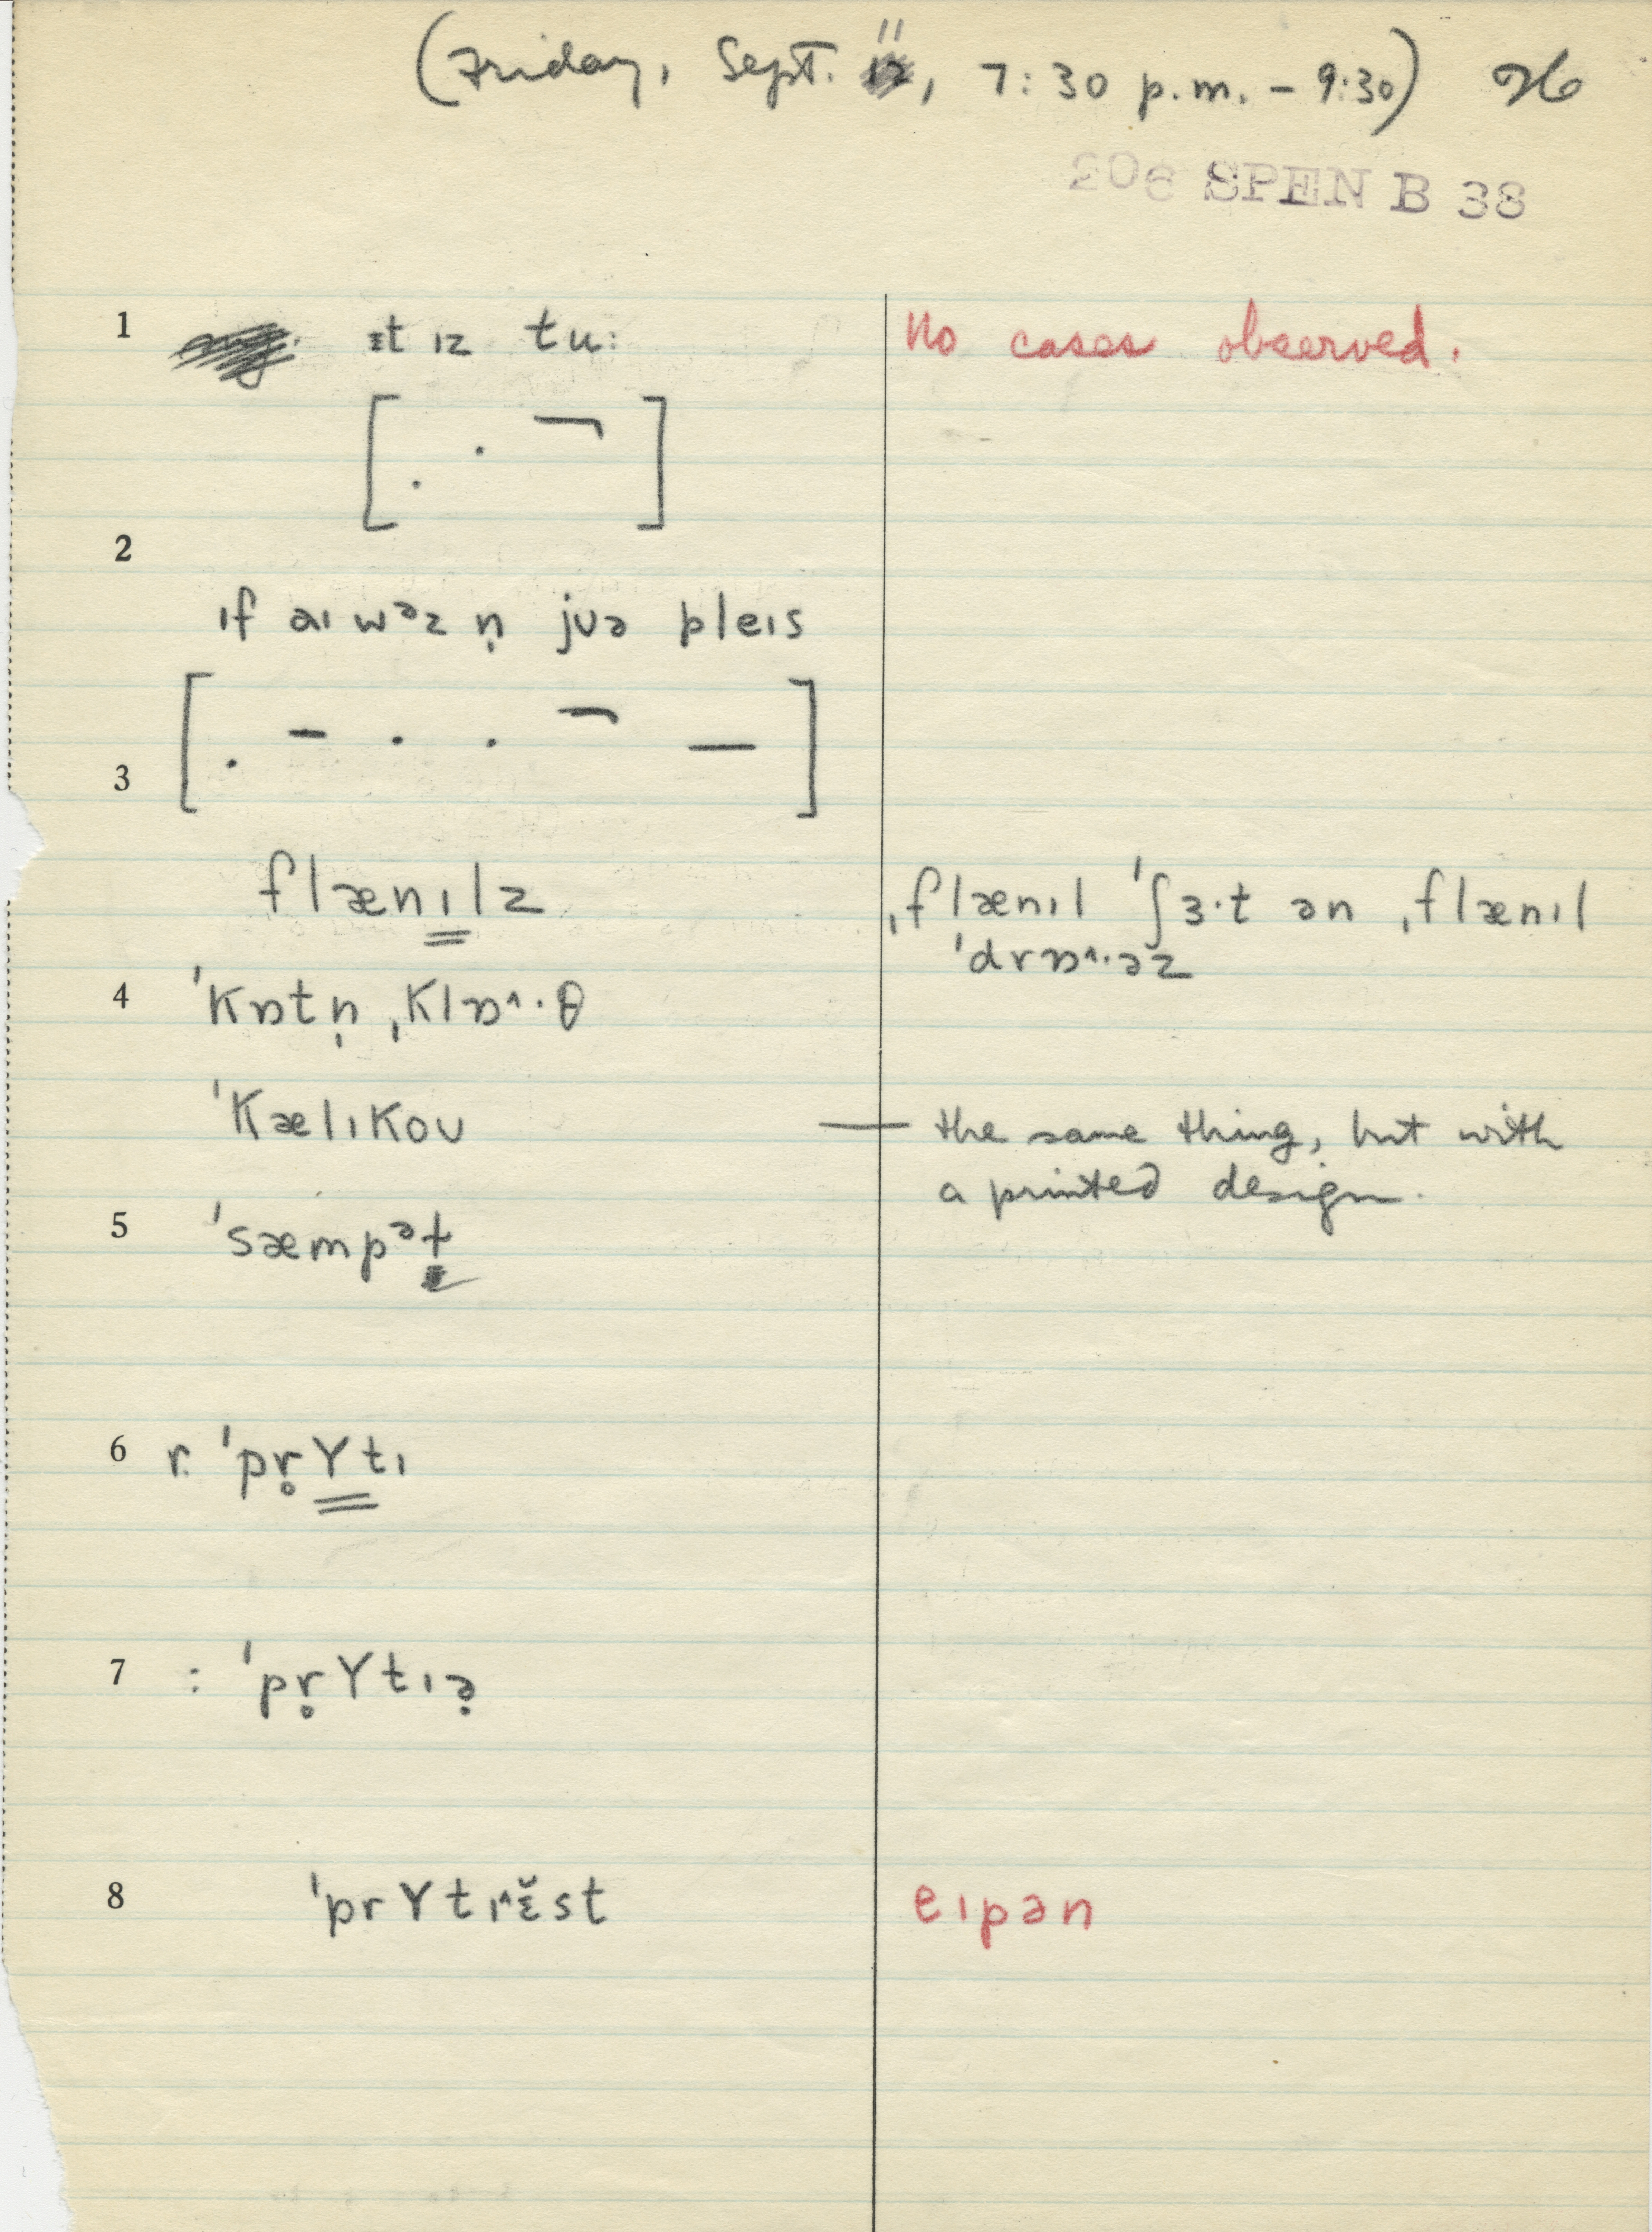 (Friday, Sept. 11, 7:30 p.m. – 9:30) H
206 SPEN B 38
1 ɪt ɪz tu: No cases observed.
2
ɪf aɪ wᵊz n̩ jʊə pleɪs
3
flænɪlz ˌflænɪl ˈʃɜ·t ən ˌflænɪl
ˈdrɒ^·əz
4 ˈkɒtn̩ ˌklɒ^·θ
ˈkælɪkoʊ — the same thing, but with
a printed design.
5 ˈsæmpᵊt
6 r. ˈpr̥ʏtɪ
7 : ˈpr̥ʏtɪə̣
8 ˈprʏtɪ^ɛ̆st eɪpən